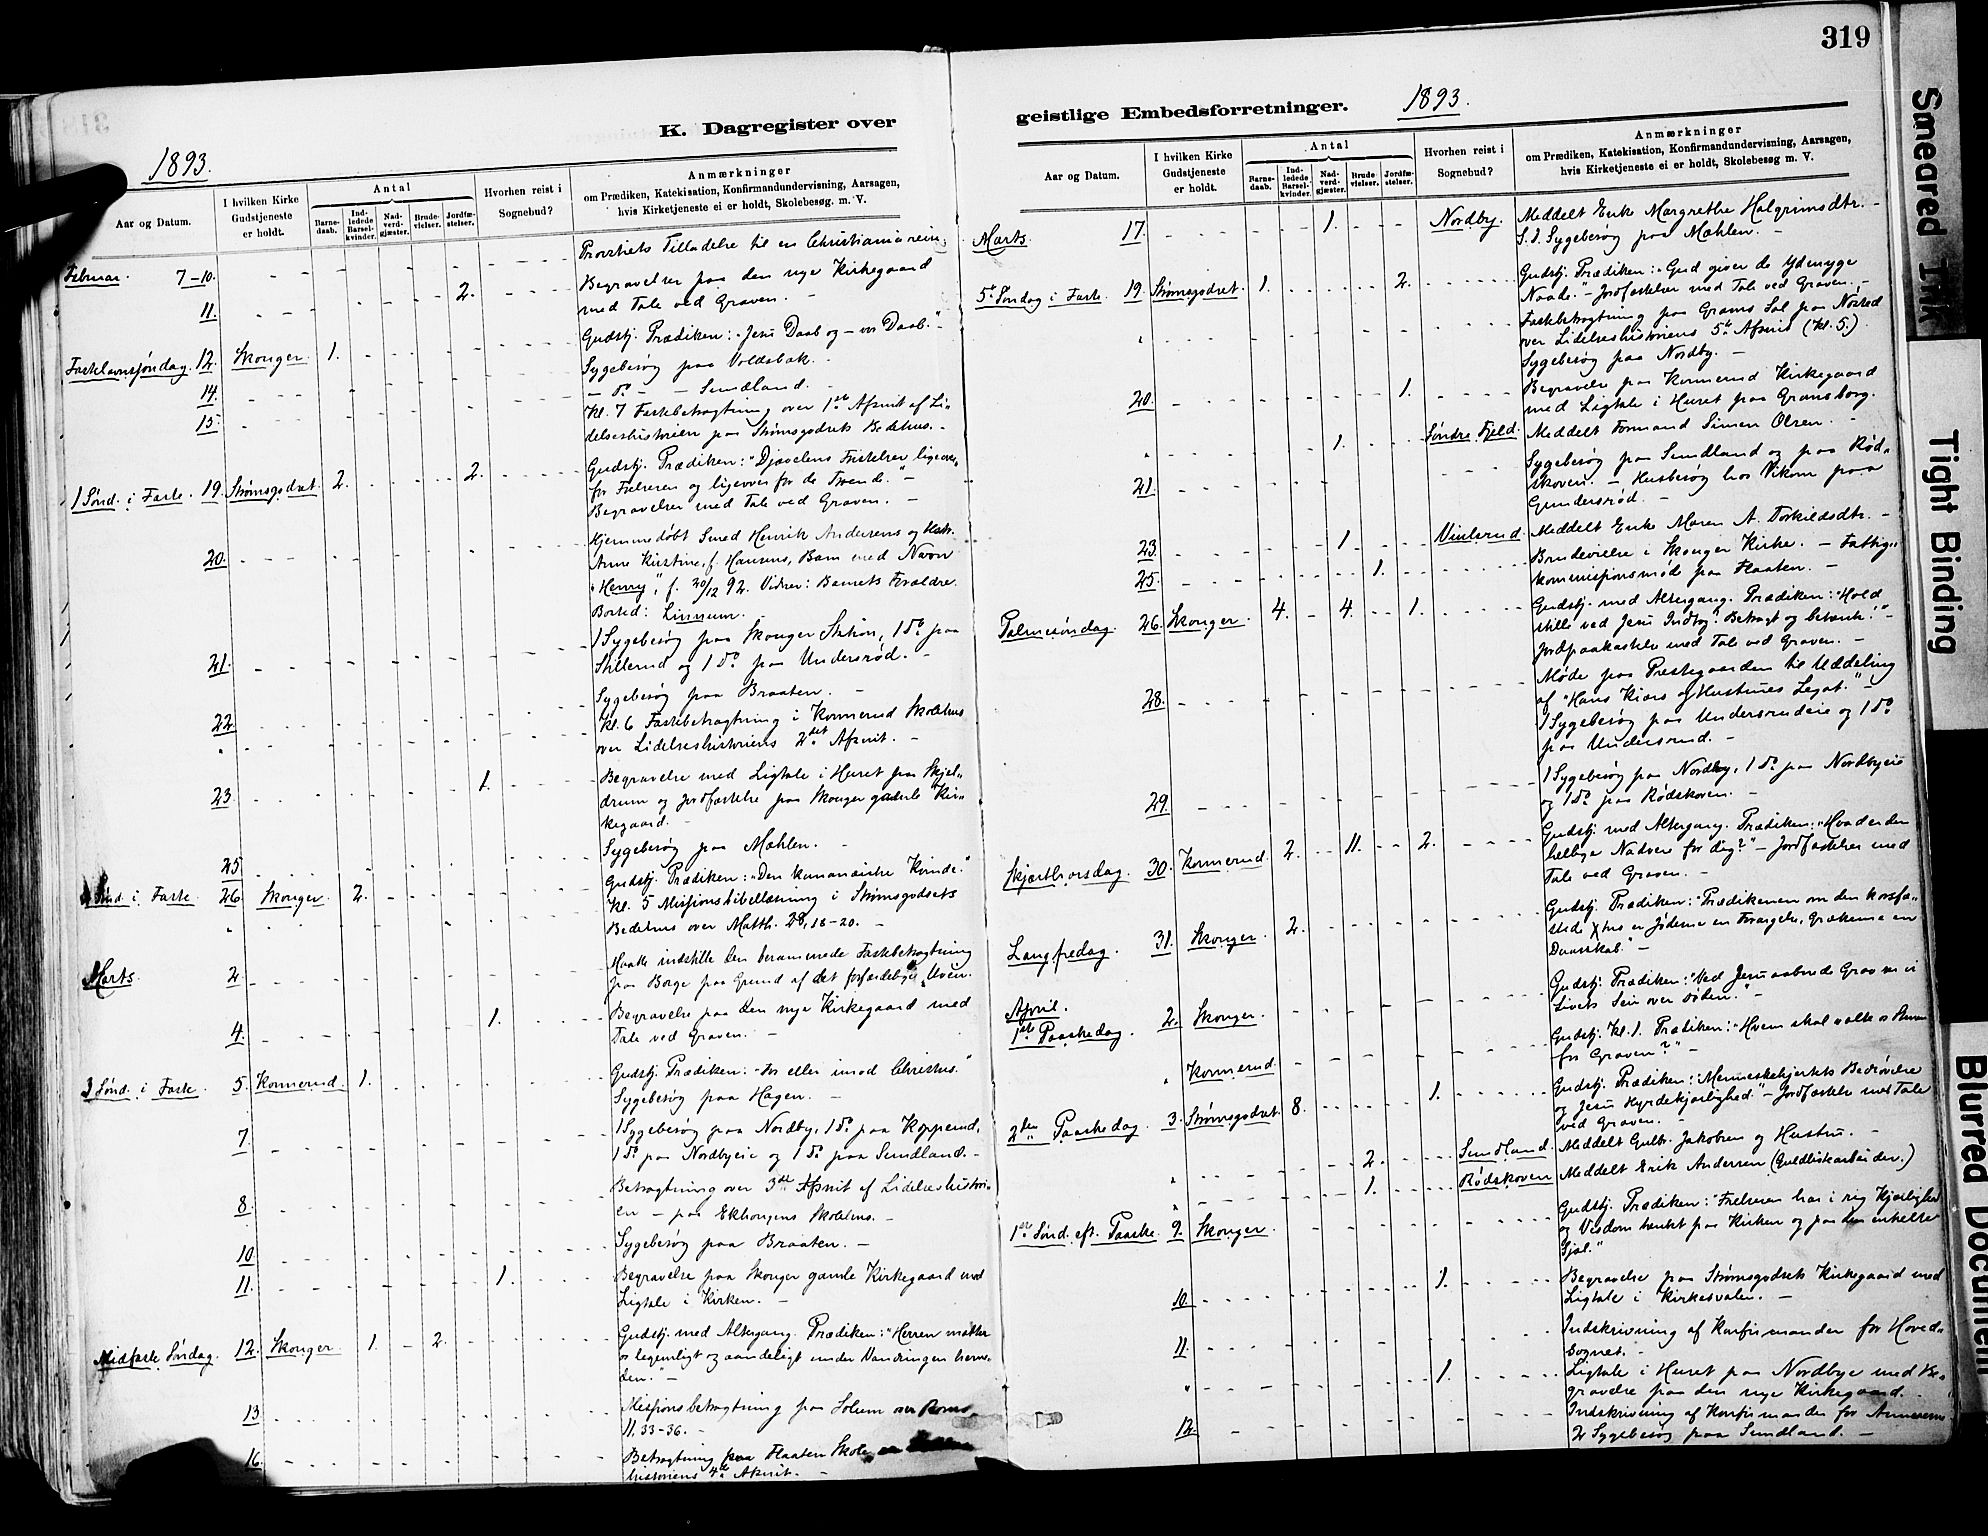 319
K. Dagregister over
1893.
Aar og Datum.
I hvilken Kirke Gudstjeneste er holdt.
Antal
Barne-daab.
Ind-ledede Barsel-kvinder.
Nad-verd-gjæster.
Brude-vielser.
Jordfæ-stelser.
Hvorhen reist i Sognebud?
Anmærkninger
om Prædiken, Katekisation, Konfirmandundervisning, Aarsagen,
hvis Kirketjeneste ei er holdt, Skolebesøg. m. V.
Februar 7-10. Provstiets Tilladelse til en Christianiareise.
11. 2. Begravelser paa den nye Kirkegaard
med Tale ved Graven. -
Fastelavnssøndag. 12. Skouger. 1. Gudstj. Prædiken: "Jesu Daab og - vor Daab." -
Sygebesøg paa Voldsbak. -
14. - do - - Sundland. -
15. Kl. 7 Fastebetragtning over 1ste Afsnit af Li-
delseshistorien paa Strømsgodsets Bedehus. -
1 Sønd. i Faste. 19. Strømsgodset. 2. 2. Gudstj. Prædiken: "Djævelens Fristelser ligeover-
for Frelseren og ligeover for de Troende." -
Begravelser med Tale ved Graven. -
20. Hjemmedøbt Smed Henrik Andersens og Hustr.
Anne Kirstine, f. Hansens, Barn med Navn
"Henry", f. 30/12 92. Vidner: Barnets Forældre.
Bosted: Linnum. -
21. 1 Sygebesøg paa Skouger Station, 1 do paa
Stillerud og 1 do paa Undersrød. -
Sygebesøg paa Braaten. -
22. Kl. 6 Fastebetragtning i Konnerud Skolehus
" over Lidelseshistoriens 2det Afsnit. -
23. 1. Begravelse med Ligtale i Huset paa Skjel-
drum og Jordfæstelse paa Skouger gamle Kir-
kegaard. -
25 Sygebesøg paa Mæhlen. -
Sønd. i Faste 26. Skouger. 2. Gudstj. Prædiken: "Den kananæiske Kvinde."
" Kl. 5 Missionsbibellæsning i Strømsgodsets
Bedehus over Matth. 28, 18-20. -
Marts. 2. Maatte indstille den berammede Fastebetragtning
paa Borge paa Grund af det forfærdelige Uveir.
4. 1. Begravelse paa den nye Kirkegaard med
Tale ved Graven. -
3 Sønd. i Faste. 5. Konnerud. 1. Gudstj. Prædiken: "For eller imod Christus."
Sygebesøg paa Hagen. -
7. 1 Sygebesøg paa Nordby, 1 do paa Kopperud,
1 do paa Nordbyeie og 1 do paa Sundland. -
8. Betragtning over 3die Afsnit af Lidelseshistori-
en - paa Ekhougens Skolehus. -
10. Sygebesøg paa Braaten. -
11. 1. Begravelse paa Skouger gamle Kirkegaard med
Ligtale i Kirken. -
Midfaste Søndag. 12. Skouger. 1. 2. Gudstj. med Altergang. Prædiken: "Herren mætter
os legemligt og aandeligt under Vandringen herne-
den." -
13 Missionsbetragtning paa Solum over Roms.
11, 33-36. -
16. Betragtning paa Flaaten Skole
historiens 4de Afsnit. -
geistlige Embedsforretninger. 1893.
Aar og Datum.
I hvilken Kirke Gudstjeneste er holdt.
Antal
Barne-daab.
Ind-ledede Barsel-kvinder.
Nad-verd-gjæster.
Brude-vielser.
Jordfæ-stelser.
Hvorhen reist i Sognebud?
Anmærkninger
om Prædiken, Katekisation, Konfirmandundervisning, Aarsagen,
hvis Kirketjeneste ei er holdt, Skolebesøg m. V.
Marts. 17. 1. Nordby. Meddelt Enke Margrethe Halgrimsdtr. -
S. D. Sygebesøg paa Mæhlen. -
5te Søndag i Faste. 19. Strømsgodset. 1. 2. Gudstj. Prædiken: "Gud giver de Ydmyge
Naade." - Jordfæstelser med Tale ved Graven. -
" Fastebetragtning paa Grams Sal paa Næsted
over Lidelseshistoriens 5te Afsnit (Kl. 5.)
Sygebesøg paa Nordby. -
20. 1. Begravelse paa Konnerud Kirkegaard
med Ligtale i Huset paa Gransborg.
" 1. Søndre Fjeld. Meddelt Formand Simen Olsen. -
21. Sygebesøg paa Sundland og paa Rød-
skoven. - Husbesøg hos Vikom paa
Gundersrød. -
23. 1. Vinlerud. Meddelt Enke Maren A. Torkildsdtr. -
25. 1. Brudevielse i Skouger Kirke. - Fattig-
kommissionsmøde paa Flaaten. -
Palmesøndag. 26. Skouger. 4. 4. 1. Gudstj. med Altergang. Prædiken: "Hold
stille ved Jesu Indtog! Betragt og betænk!" -
Jordpaakastelse med Tale ved Graven. -
28. Møde paa Præstegaarden til Uddeling
af "Hans Kiærs og Hustrues Legat." -
1 Sygebesøg paa Undersrudeie og 1 do
paa Undersrud. -
29. 1 Sygebesøg paa Nordby, 1 do paa Nordbyeie
og 1 do paa Rødskoven. -
Skjærthorsdag. 30. Konnerud. 2. 11. 2. Gudstj. med Altergang. Prædiken: "Hvad er den
hellige Nadver for dig?" - Jordfæstelser med
Tale ved Graven. -
Langfredag. 31. Skouger. 2. Gudstj. Prædiken: "Prædikenen om den korsfæ-
stede Xtus er Jøderne en Forargelse, Grækerne en
Daarskab." -
April.
1ste Paaskedag 2. Skouger. Gudstj. Prædiken: "Ved Jesu aabnede Grav se vi
Livets Seir over Døden." -
" Konnerud. Gudstj. Kl. 1. Prædiken: "Hvem skal vælte os Stenen
fra Graven?" -
2den Paaskedag. 3. Strømsgodset. 8. 1. Gudstj. Prædiken: "Menneskehjertets Bedrøvelse
og Jesu Hyrdekjærlighed." - Jordfæstelse med Tale
ved Graven. -
" 2. Sundland. Meddelt Gulbr. Jakobsen og Hustru. -
" 1. Rødskoven Meddelt Erik Andersen (Guldlistearbeider.)
1ste Sønd. eft. Paaske. 9. Skouger. Gudstj. Prædiken: "Frelseren har i sig Kjærlighed
og Visdom tænkt paa Kirken og paa den enkelte
Sjæl."
10. 1. Begravelse paa Strømsgodsets Kirkegaard med
Ligtale i Kirkesvalen. -
11. Indskrivning af Konfirmander for Hoved-
sognet. -
" 1. Ligtale i Huset paa Nordbye med Be-
gravelse paa den nye Kirkegaard. -
12. Indskrivning af Konfirmander for Annexerne.
2 Sygebesøg paa Sundland. -
Smeared Ink
Tight Binding
Blurred Document